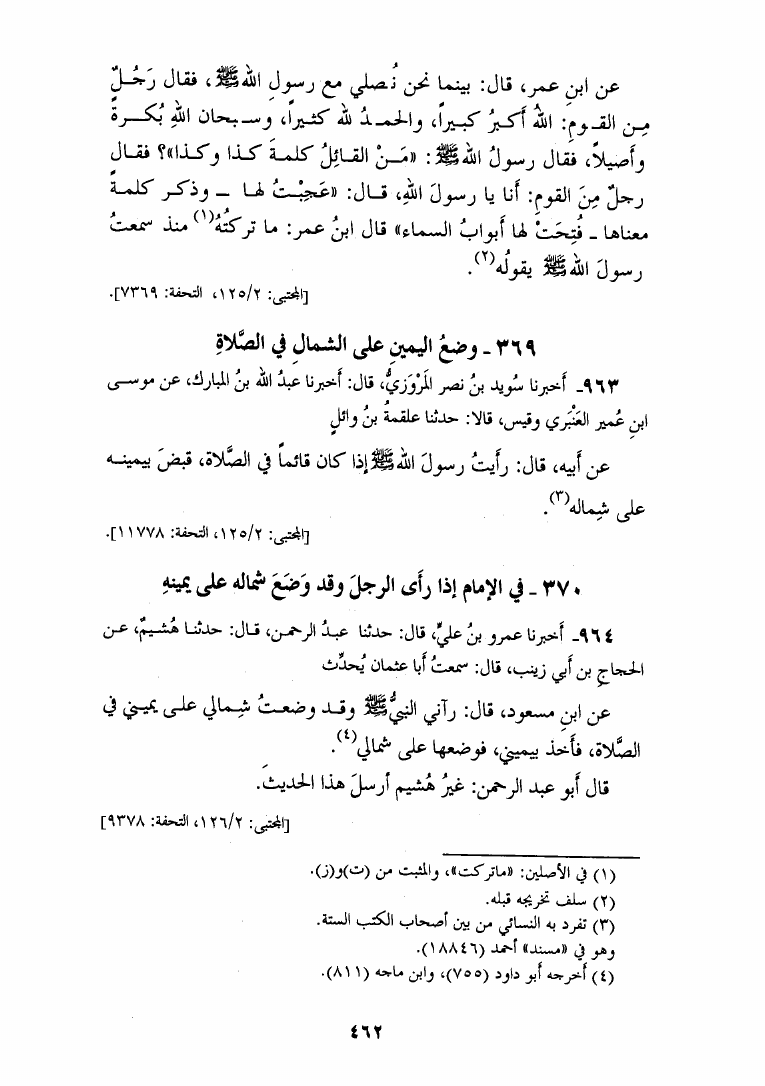 عن ابنِ عمر، قال: بينما نحن نُصلي مع رسولِ اللهﷺ، فقال رَجُلٌ
مِن القومِ: اللهُ أكبرُ كبيراً، والحمدُ لله كثيراً، وسبحان اللهِ بُكرةً
وأصيلاً، فقال رسولُ اللهﷺ: «مَنْ القائِلُ كلمةَ كذا وكذا»؟ فقال
رجلٌ مِنَ القوم: أنا يا رسولَ اللهِ، قال: «عَجِبْتُ لها – وذكر كلمةً
معناها – فُتِحَتْ لها أبوابُ السماء» قال ابنُ عمر: ما تركتُهُ(١) منذ سمعتُ
رسولَ اللهﷺ يقولُه(٢).
[المجتبى: ١٢٥/٢، التحفة: ٧٣٦٩].
٣٦٩ - وضعُ اليمينِ على الشمالِ في الصَّلاةِ
٩٦٣- أخبرنا سُويد بنُ نصر المَرْوَزيُّ، قال: أخبرنا عبدُ الله بنُ المبارك، عن موسى
ابنِ عُمير العَنْبَري وقيس، قالا: حدثنا علقمةُ بنُ وائلٍ
عن أبيه، قال: رأيتُ رسولَ اللهﷺ إذا كان قائماً في الصَّلاة، قبضَ بيمينه
على شِماله(٣).
[المجتبى: ١٢٥/٢، التحفة: ١١٧٧٨].
٣٧٠ - في الإمام إذا رأى الرجلَ وقد وَضَعَ شماله على يمينهِ
٩٦٤- أخبرنا عمرو بنُ عليٍّ، قال: حدثنا عبدُ الرحمن، قال: حدثنا هُشيمٌ، عن
الحجاجِ بن أبي زينب، قال: سمعتُ أبا عثمان يُحدِّث
عن ابنِ مسعود، قال: رآني النبيُّﷺ وقد وضعتُ شِمالي على يميني في
الصَّلاة، فأخذ بيميني، فوضعها على شمالي(٤).
قال أبو عبد الرحمن: غيرُ هُشيم أرسلَ هذا الحديثَ.
[المجتبى: ١٢٦/٢، التحفة: ٩٣٧٨]
(١) في الأصلين: «ماتركت»، والمثبت من (ت)و(ز).
(٢) سلف تخريجه قبله.
(٣) تفرد به النسائي من بين أصحاب الكتب الستة.
وهو في «مسند» أحمد (١٨٨٤٦).
(٤) أخرجه أبو داود (٧٥٥)، وابن ماجه (٨١١).
٤٦٢